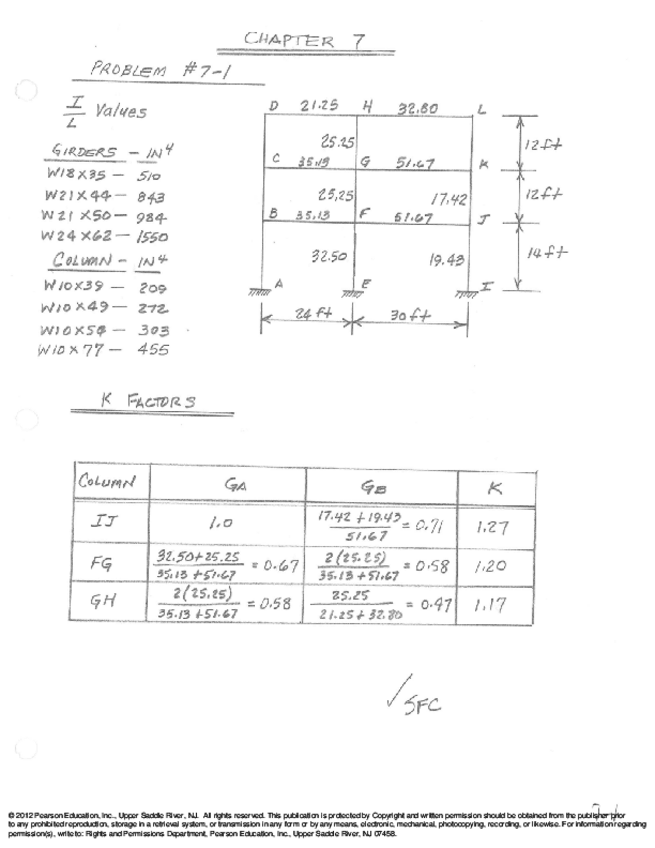 CHAPTER 7
PROBLEM #7-1
I/L Values
GIRDERS - IN⁴
W18X35 - 510
W21X44 - 843
W21X50 - 984
W24X62 - 1550
COLUMN - IN⁴
W10X39 - 209
W10X49 - 272
W10X54 - 303
W10X77 - 455
D 21.25 H 32.80 L
25.25 12ft
C 35.13 G 51.67 K
25.25 17.42 12ft
B 35.13 F 51.67 J
32.50 19.43 14ft
A E I
24 ft 30ft
K FACTORS
COLUMN GA GB K
IJ 1.0 17.42+19.43/51.67 = 0.71 1.27
FG 32.50+25.25/35.13+51.67 = 0.67 2(25.25)/35.13+51.67 = 0.58 1.20
GH 2(25.25)/35.13+51.67 = 0.58 25.25/21.25+32.80 = 0.47 1.17
✓ SFC
© 2012 Pearson Education, Inc., Upper Saddle River, NJ. All rights reserved. This publication is protected by Copyright and written permission should be obtained from the publisher prior
to any prohibited reproduction, storage in a retrieval system, or transmission in any form or by any means, electronic, mechanical, photocopying, recording, or likewise. For information regarding
permission(s), write to: Rights and Permissions Department, Pearson Education, Inc., Upper Saddle River, NJ 07458.